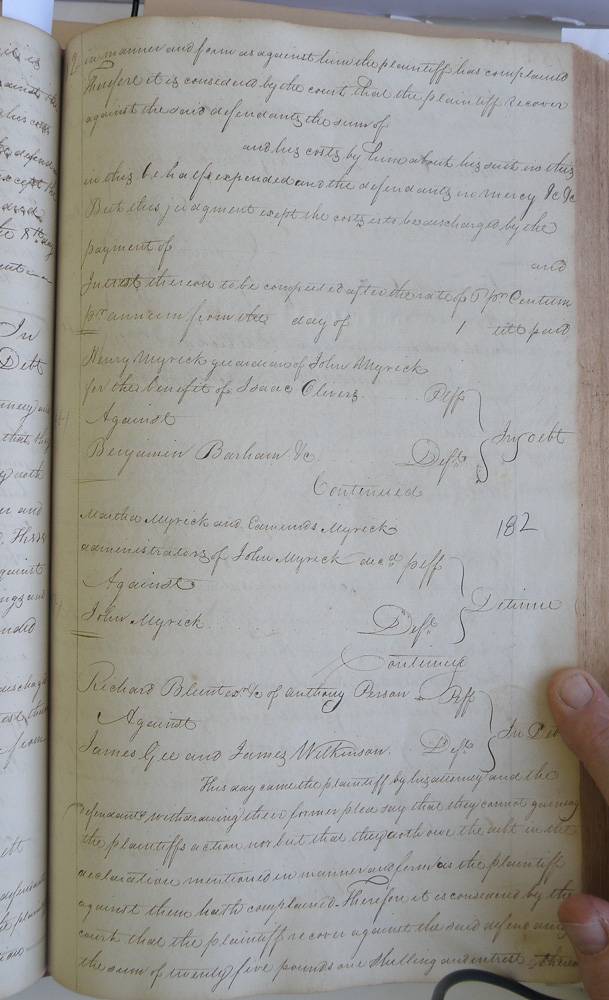 in manner and form as against him the plaintiff has complained
Therefore it is considered by the court that the plaintiff recover
against the said defendants the sum of
and his costs by him about his suit in this
in this behalf expended and the defendants in mercy &c &c
But this judgment except the costs is to be discharged by the
payment of
and
Interest thereon to be computed after the rate of P pr Centum
pr annum from the day of 1 till paid
Henry Myrick guardian of John Myrick
for the benefit of Isaac Olivers Plff
Against
In debt
Benjamin Barham &c. Deft
Continued
Martha Myrick and Edmunds Myrick
182
administrators of John Myrick decd plff
Against
Detinue
John Myrick Deft
Continued
Richard Blunt exr &c of Anthony Person Plff
Against
In Deb
James Gee and James Wilkinson. Defts
This day came the plaintiff by his attorney and the
defendants withdrawing their former plea say that they cannot gainsay
the plaintiffs action nor but that they doth owe the debt in the
declaration mentioned in manner and form as the plaintiff
against them hath complained. Therefore it is considered by the
court that the plaintiff recover against the said defendants
the sum of twenty five pounds one shilling and interest thereon